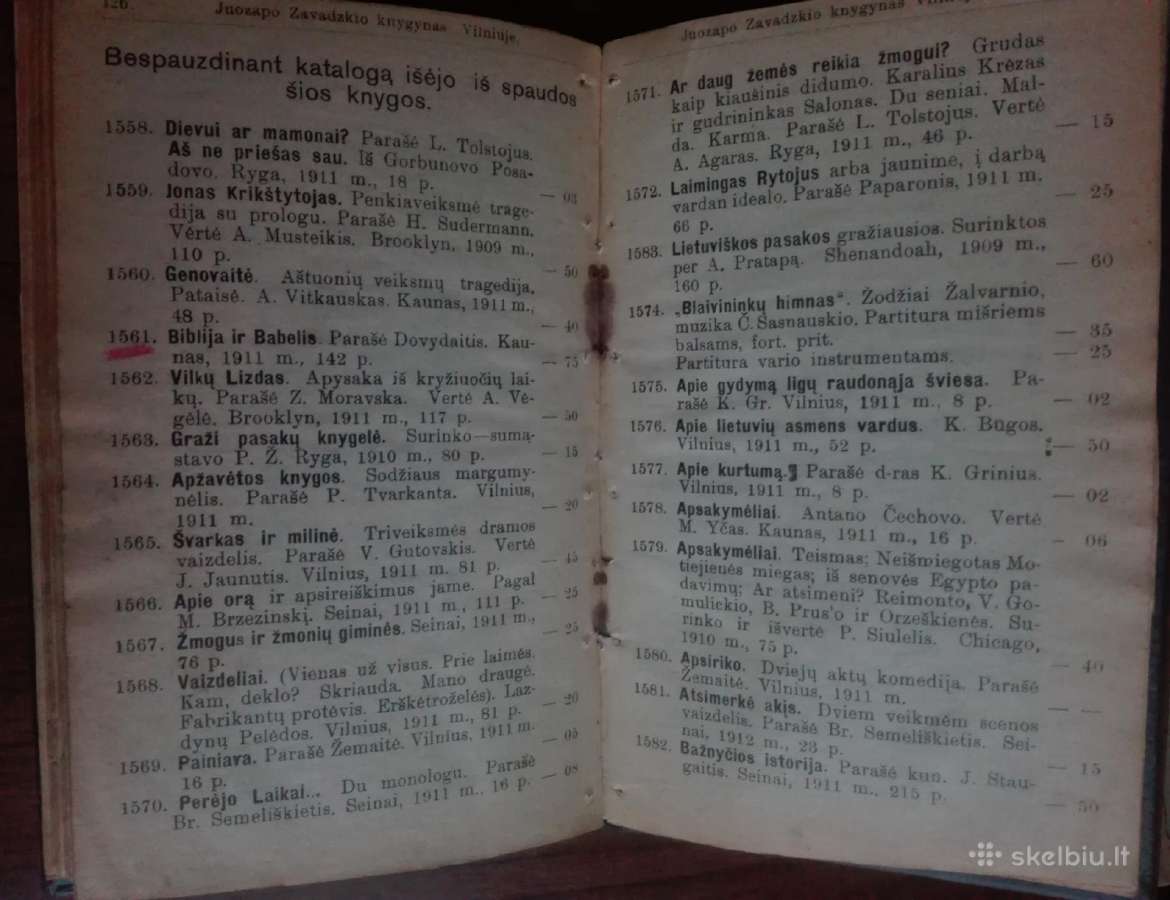 126.
Juozapo Zavadzkio knygynas Vilniuje.
Bespauzdinant katalogą išėjo iš spaudos
šios knygos.
1558. Dievui ar mamonai? Parašė L. Tolstojus.
Aš ne priešas sau. Iš Gorbunovo Posa-
dovo. Ryga, 1911 m., 18 p. — 03
1559. Jonas Krikštytojas. Penkiaveiksmė trage-
dija su prologu. Parašė H. Sudermann.
Vėrtė A. Musteikis. Brooklyn, 1909 m.,
110 p. — 50
1560. Genovaitė. Aštuonių veiksmų tragedija.
Pataisė. A. Vitkauskas. Kaunas, 1911 m.,
48 p. — 40
1561. Biblija ir Babelis. Parašė Dovydaitis. Kau-
nas, 1911 m., 142 p. — 75
1562. Vilkų Lizdas. Apysaka iš kryžiuočių lai-
kų. Parašė Z. Moravska. Vertė A. Vė-
gėlė. Brooklyn, 1911 m., 117 p. — 50
1563. Graži pasakų knygelė. Surinko—sumą-
stavo P. Ž. Ryga, 1910 m., 80 p. — 15
1564. Apžavėtos knygos. Sodžiaus margumy-
nėlis. Parašė P. Tvarkanta. Vilnius,
1911 m. — 20
1565. Švarkas ir milinė. Triveiksmės dramos
vaizdelis. Parašė V. Gutovskis. Vertė
J. Jaunutis. Vilnius, 1911 m. 81 p. — 45
1566. Apie orą ir apsireiškimus jame. Pagal
M. Brzezinskį. Seinai, 1911 m., 111 p. — 25
1567. Žmogus ir žmonių giminės. Seinai, 1911 m.,
76 p. — 25
1568. Vaizdeliai. (Vienas už visus. Prie laimės.
Kam, deklo? Skriauda. Mano draugė.
Fabrikantų protėvis. Erškėtroželės). Laz-
dynų Pelėdos. Vilnius, 1911 m., 81 p. — 20
1569. Painiava. Parašė Žemaitė. Vilnius, 1911 m.
16 p. — 05
1570. Perėjo Laikai... Du monologu. Parašė
Br. Semeliškietis. Seinai, 1911 m., 16 p. — 08
Juozapo Zavadzkio knygynas
1571. Ar daug žemės reikia žmogui? Grudas
kaip kiaušinis didumo. Karalius Krėzas
ir gudrininkas Salonas. Du seniai. Mal-
da. Karma. Parašė L. Tolstojus. Vertė
A. Agaras. Ryga, 1911 m., 46 p. — 15
1572. Laimingas Rytojus arba jaunime, į darbą
vardan idealo. Parašė Paparonis, 1911 m.
66 p. — 25
1583. Lietuviškos pasakos gražiausios. Surinktos
per A. Pratapą. Shenandoah, 1909 m.,
160 p. — 60
1574. „Blaivininkų himnas". Žodžiai Žalvarnio,
muzika Č. Sasnauskio. Partitura mišriems
balsams, fort. prit. — 35
Partitura vario instrumentams. — 25
1575. Apie gydymą ligų raudonąja šviesa. Pa-
rašė K. Gr. Vilnius, 1911 m., 8 p. — 02
1576. Apie lietuvių asmens vardus. K. Būgos.
Vilnius, 1911 m., 52 p. — 50
1577. Apie kurtumą. Parašė d-ras K. Grinius.
Vilnius, 1911 m., 8 p. — 02
1578. Apsakymėliai. Antano Čechovo. Vertė
M. Yčas. Kaunas, 1911 m., 16 p. — 06
1579. Apsakymėliai. Teismas; Neišmiegotas Mo-
tiejienės miegas; iš senovės Egypto pa-
davimų; Ar atsimeni? Reimonto, V. Go-
mulickio, B. Prus'o ir Orzeškienės. Su-
rinko ir išvertė P. Siulelis. Chicago,
1910 m., 75 p. — 40
1580. Apsiriko. Dviejų aktų komedija. Parašė
Žemaitė. Vilnius, 1911 m. — —
1581. Atsimerkė akįs. Dviem veikmėm scenos
vaizdelis. Parašė Br. Semeliškietis. Sei-
nai, 1912 m., 23 p. — 15
1582. Bažnyčios istorija. Parašė kun. J. Stau-
gaitis. Seinai, 1911 m., 215 p. — 50
skelbiu.lt